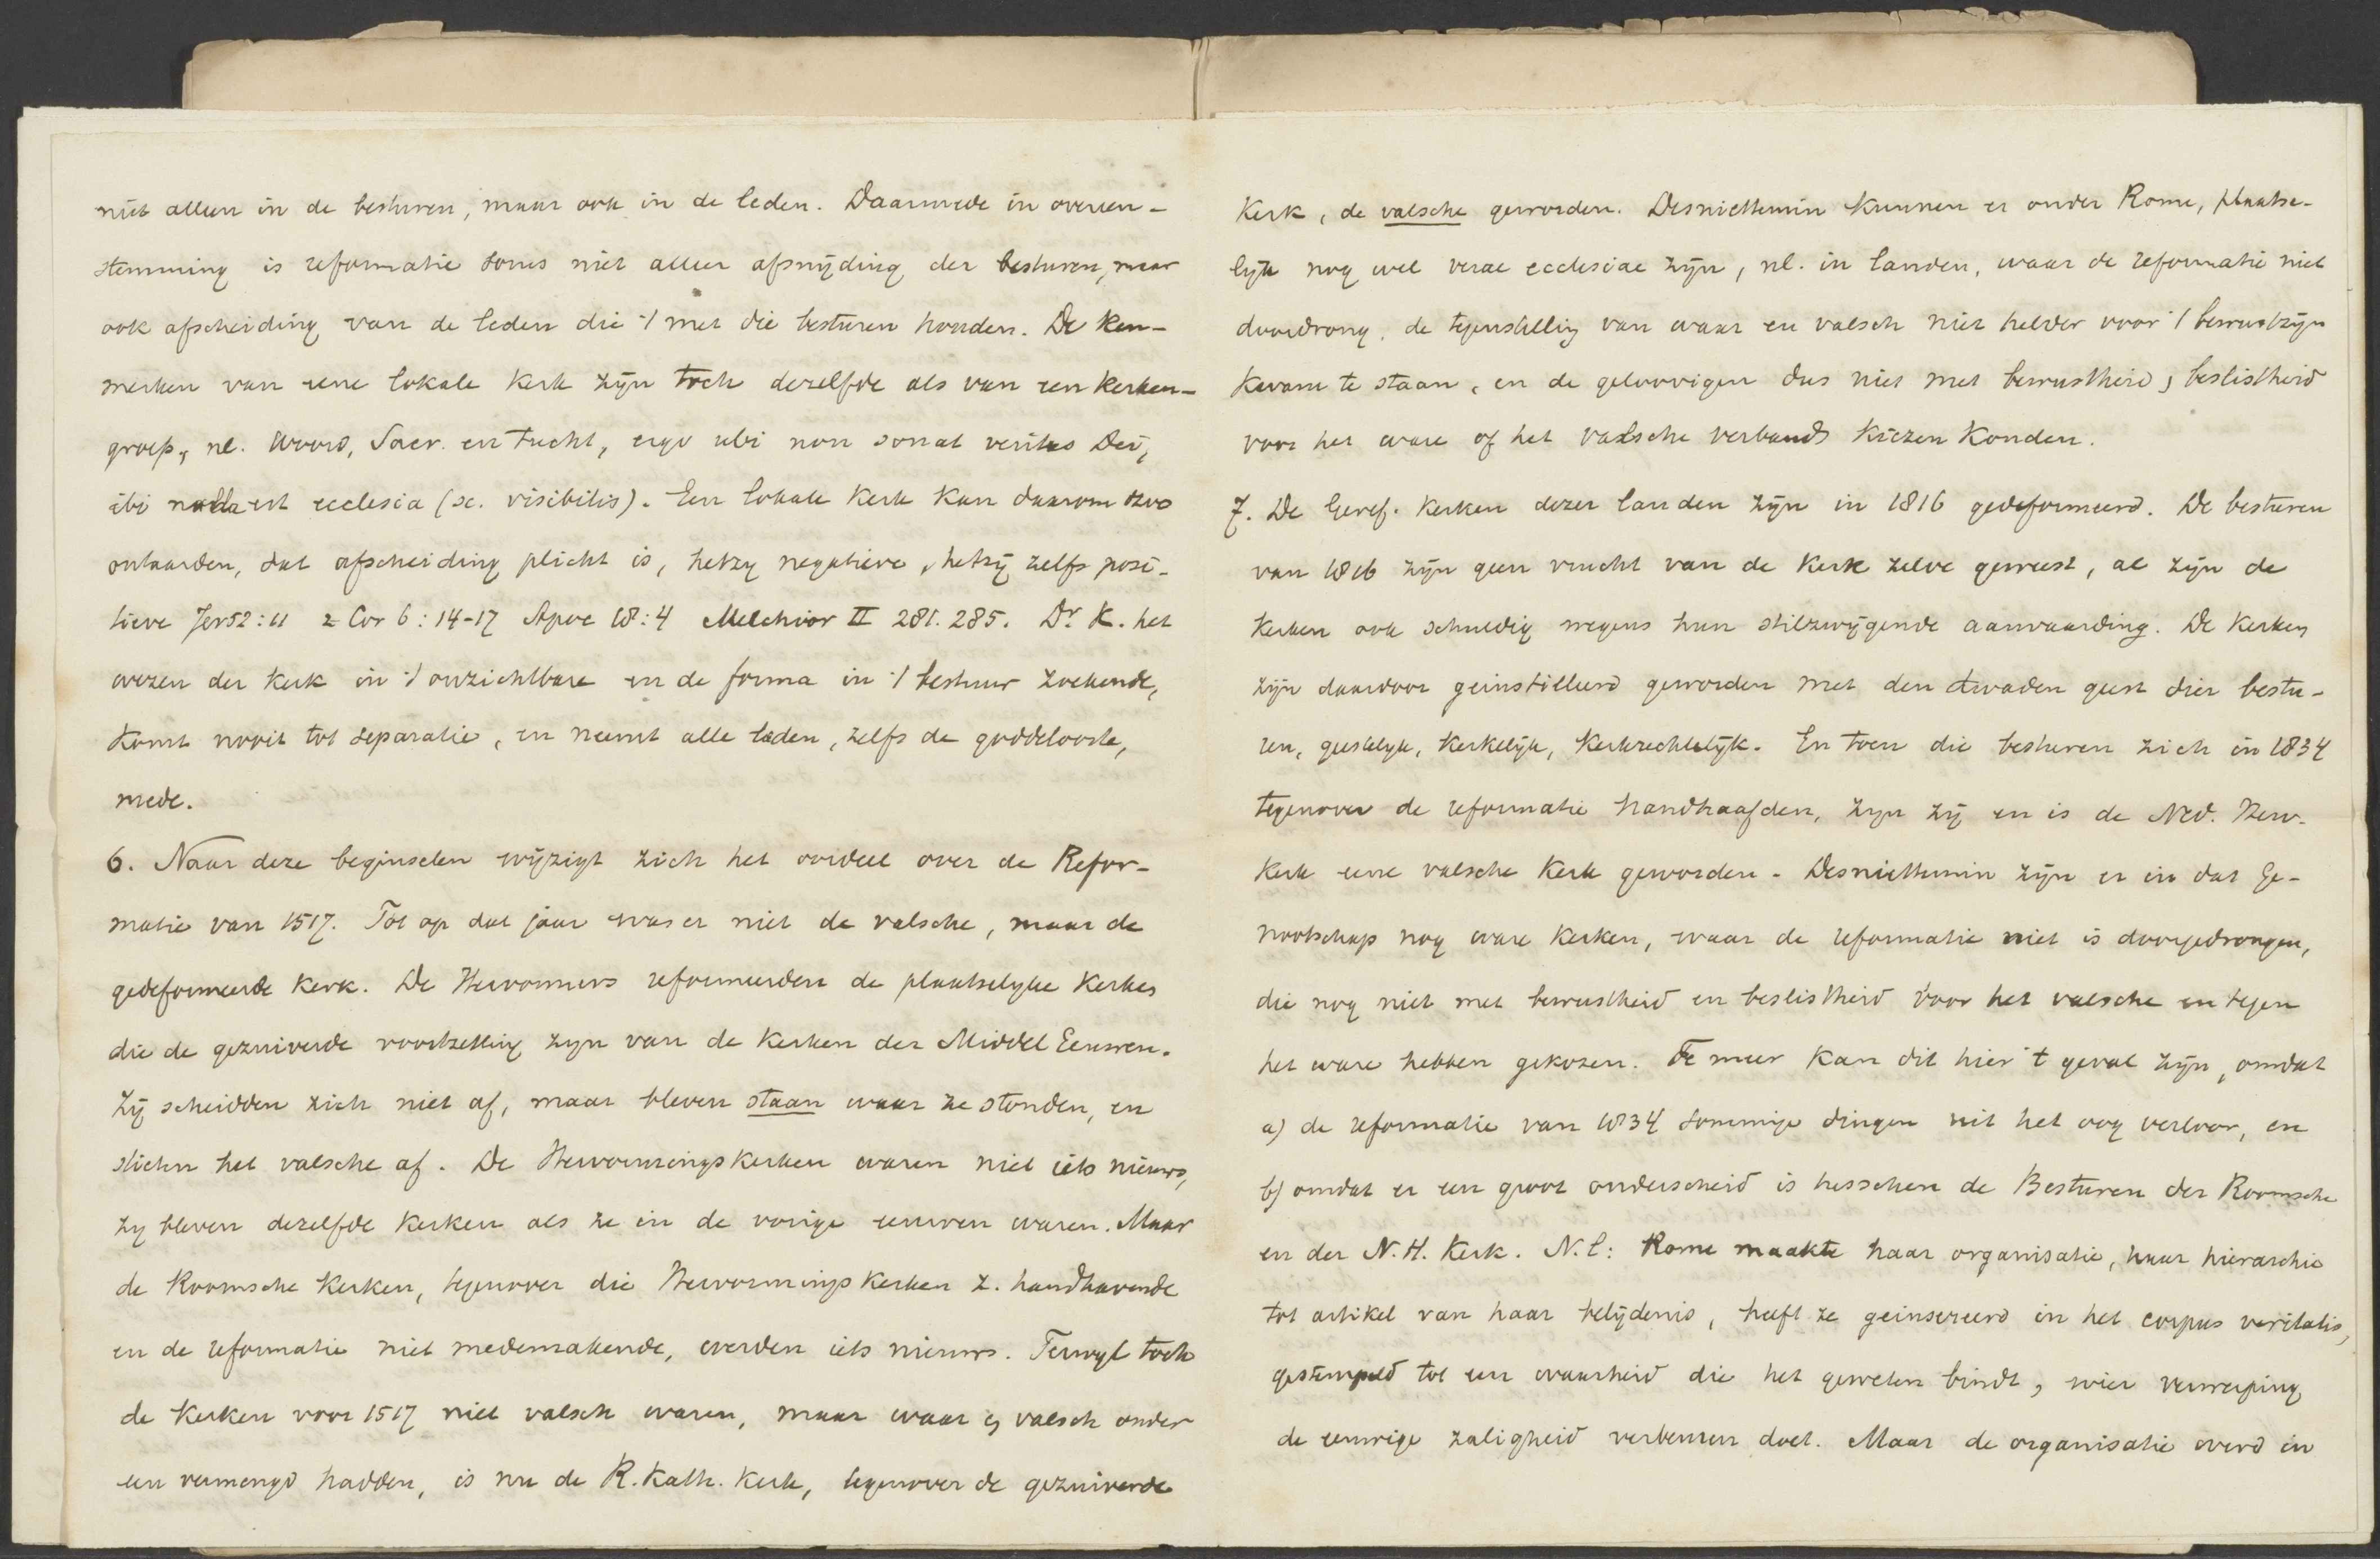 niet alleen in de besturen, maar ook in de leden. Daarmede in overeen-
stemming is reformatie soms niet alleen afsnijding der besturen, maar
ook afscheiding van de leden die 't met die besturen houden. De ken-
merken van eene lokale kerk zijn toch dezelfde als van een kerken-
groep, nl. Woord, Sacr. en tucht, ergo ubi non sonat veritas Dei,
ibi nulla est ecclesia (sc. visibilis). Een lokale kerk kan daarom zoo
ontaarden, dat afscheiding plicht is, hetzy negatieve, hetzij zelfs posi-
tieve Jer 52:11 2 Cor 6:14-17 Apoc 18:4 Melchior II 281. 285. Dr. K. het
wezen der kerk in 't onzichtbare en de forma in 't bestuur zoekende,
komt nooit tot separatie, en neemt alle leden, zelfs de goddelooste,
mede.
6. Naar deze beginselen wijzigt zich het oordeel over de Refor-
matie van 1517. Tot op dat jaar was er niet de valsche, maar de
gedeformeerde kerk. De Hervormers reformeerden de plaatselyke kerken
die de gezuiverde voortzetting zyn van de kerken der Middel Eeuwen.
Zij scheidden zich niet af, maar bleven staan waar ze stonden, en
stieten het valsche af. De Hervormingskerken waren niet iets nieuws,
zy bleven dezelfde kerken als ze in de vorige eeuwen waren. Maar
de Roomsche kerken, tegenover die Hervormingskerken z. handhavende
en de reformatie niet medemakende, werden iets nieuws. Terwyl toch
de kerken voor 1517 niet valsch waren, maar waar en valsch onder
een vermengd hadden, is nu de R. Kath. kerk, tegenover de gezuiverde
Kerk, de valsche geworden. Desniettemin kunnen er onder Rome, plaatse-
lijk nog wel verae ecclesiae zijn, nl. in landen, waar de reformatie niet
doordrong, de tegenstelling van waar en valsch niet helder voor 't bewustzijn
kwam te staan, en de geloovigen dus niet met bewustheid, beslistheid
voor het ware of het valsche verband kiezen konden.
7. De Geref. Kerken dezer landen zijn in 1816 gedeformeerd. De besturen
van 1816 zijn geen vrucht van de Kerk zelve geweest, al zijn de
kerken ook schuldig wegens hun stilzwijgende aanvaarding. De kerken
zijn daardoor geinstilleerd geworden met den kwaden geest dier bestu-
ren, geestelyk, kerkelijk, kerkrechtelijk. En toen die besturen zich in 1834
tegenover de reformatie handhaafden, zyn zij en is de Ned. Herv.
Kerk eene valsche Kerk geworden. Desniettemin zijn er in dat Ge-
nootschap nog ware kerken, waar de reformatie niet is doorgedrongen,
die nog niet met bewustheid en beslistheid voor het valsche en tegen
het ware hebben gekozen. Te meer kan dit hier 't geval zijn, omdat
a) de reformatie van 1834 sommige dingen uit het oog verloor, en
b) omdat er een groot onderscheid is tusschen de Besturen der Roomsche
en der N.H. Kerk. N.l: Rome maakte haar organisatie, haar hierarchie
tot artikel van haar belijdenis, heeft ze geinsereerd in het corpus veritatis,
gestempeld tot een waarheid die het geweten bindt, wier verwerping
de eeuwige zaligheid verbeuren doet. Maar de organisatie werd in